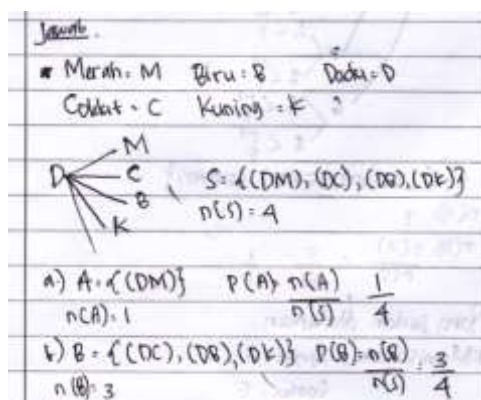 Jawab.
Merah = M Biru = B Dadu = D
Coklat = C Kuning = K
M
D C
B
K
S = {(DM), (DC), (DB), (DK)}
n(S) = 4
a) A = {(DM)} P(A) = n(A)/n(S) 1/4
n(A) = 1
b) B = {(DC), (DB), (DK)} P(B) = n(B)/n(S) = 3/4
n(B) = 3